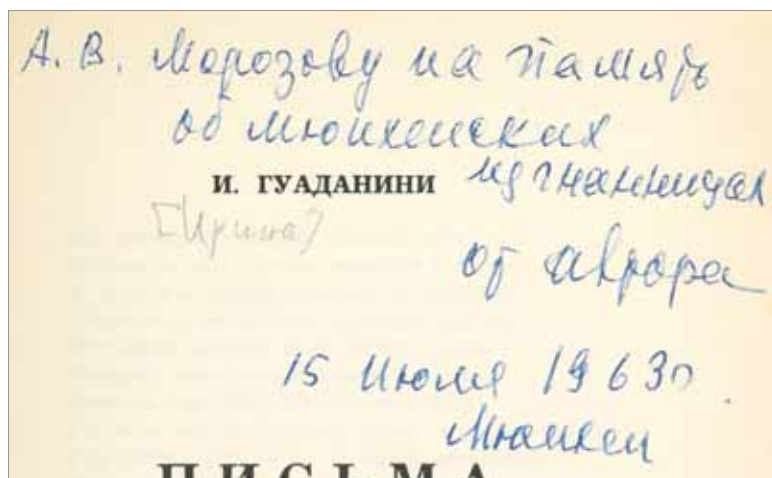 А. В. Морозову на память
об мюнхенских
изгнанницах
И. ГУАДАНИНИ
[Ирина]
от автора
15 Июля 1963г.
Мюнхен
ПИСЬМА